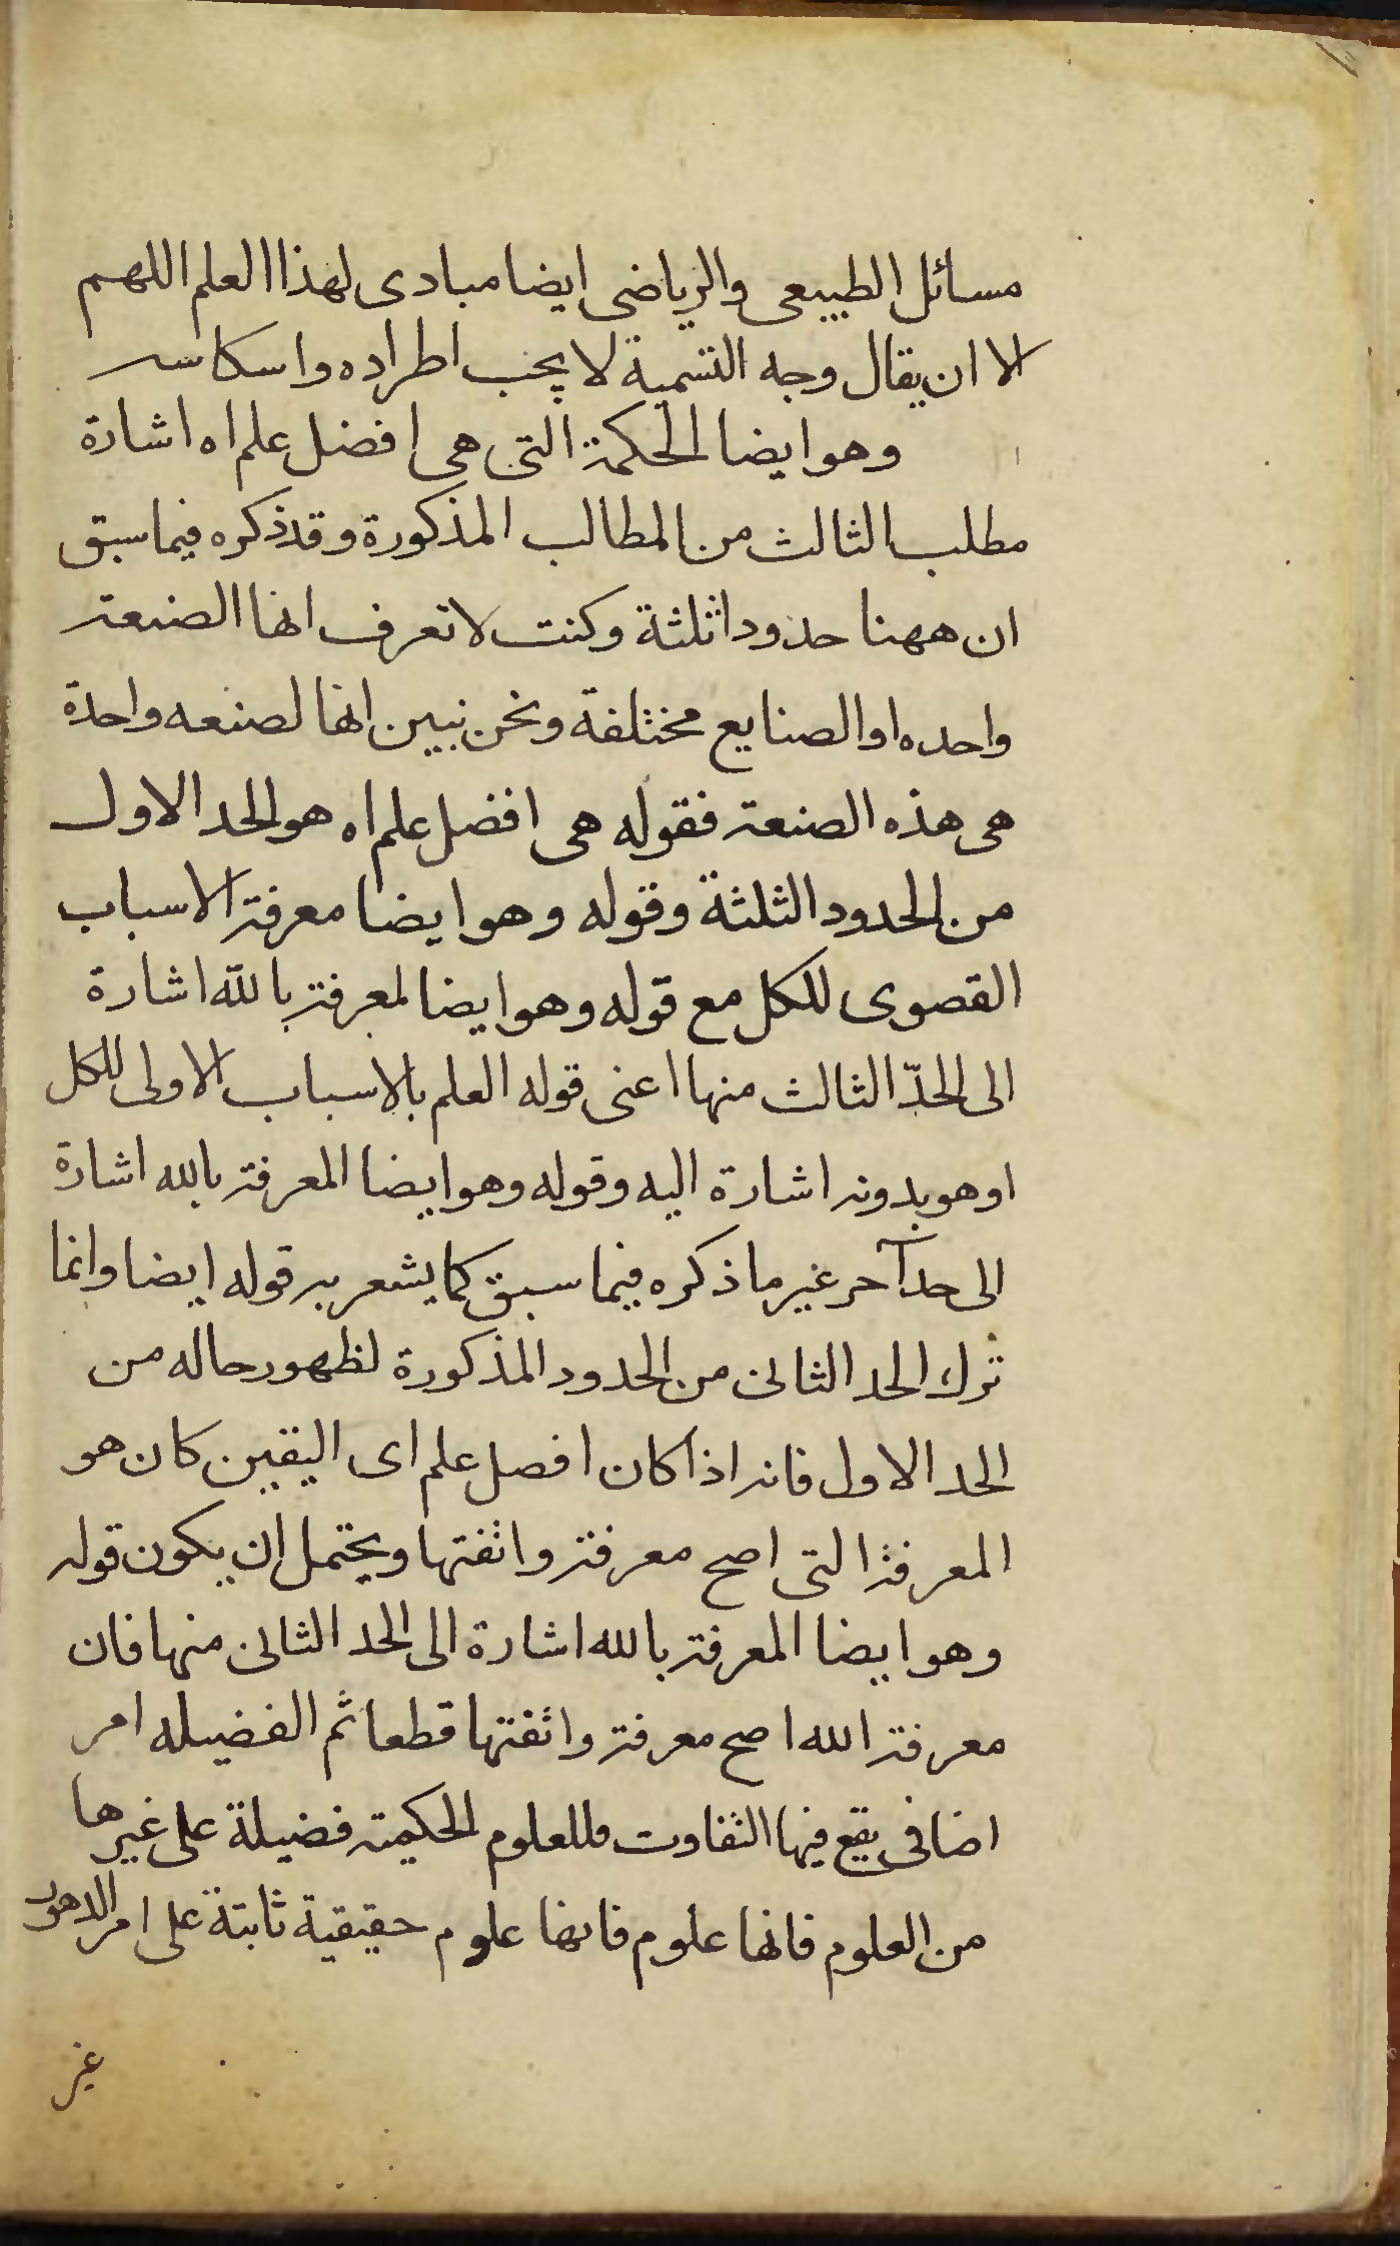 مسائل الطبيعى والرياضى ايضا مبادى لهذا العلم اللهم
الا ان يقال وجه التسمية لا يجب اطراده و
وهو ايضا الحكمة التى هى افضل علم اه اشارة
مطلب الثالث من المطالب المذكورة وقد ذكره فيما سبق
ان ههنا حدودا ثلثة وكنت لا تعرف انها الصنعة
واحده او الصنايع مختلفة ونحن نبين انها لصنعه واحدة
هى هذه الصنعة فقوله هى افضل علم اه هو الحد الاول
من الحدود الثلثة وقوله وهو ايضا معرفة الاسباب
القصوى للكل مع قوله وهو ايضا لمعرفة بالله اشارة
الى الحدّ الثالث منها اعنى قوله العلم بالاسباب الاولى للكل
او هو بدونه اشارة اليه وقوله وهو ايضا المعرفة بالله اشارة
الى حد آخر غير ما ذكره فيما سبق كما يشعر به قوله ايضا وانما
ترك الحد الثانى من الحدود المذكورة لظهور حاله من
الحد الاول فانه اذا كان افصل علم اى اليقين كان هو
المعرفة التى اصح معرفة واثقتها ويحتمل ان يكون قوله
وهو ايضا المعرفة بالله اشارة الى الحد الثانى منها فان
معرفة الله اصح معرفة واثقتها قطعا ثم الفضيله امر
اضافى يقع فيها التفاوت فللعلوم الحكمية فضيلة على غيرها
من العلوم فانها علوم فانها علوم حقيقية ثابتة على امر الدهور
غير